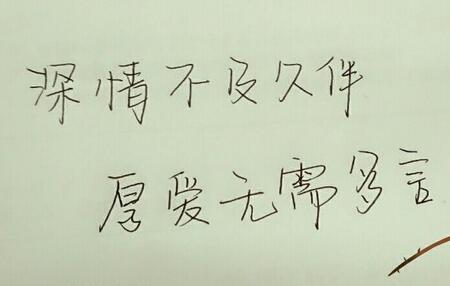 深情不及久伴
厚爱无需多言